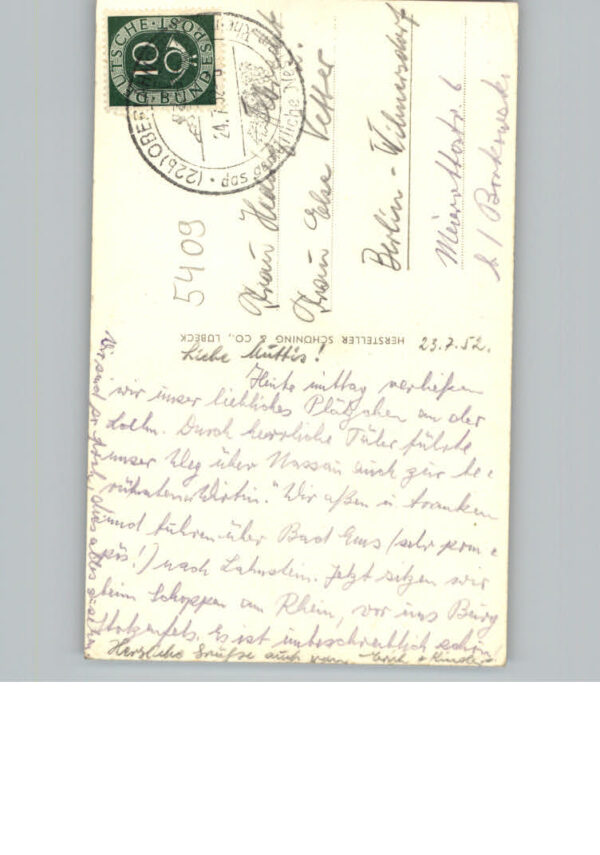 DEUTSCHE BUNDESPOST
10
(22b) OBER
24.7.52
das gastliche
5409
Frau
Frau Else Vetter
Berlin - Wilmersdorf
Meierottostr. 6
b/ Borkowski
HERSTELLER SCHÖNING & CO., LÜBECK
23.7.52.
Liebe Muttis!
Heute mittag verließen
wir unser liebliches Plätzchen an der
Lahn. Durch herrliche Täler führte
unser Weg über Nassau auch zur be-
rühmten „Wirtin." Wir aßen u. tranken
und fuhren über Bad Ems (sehr pom-
pös!) nach Lahnstein. Jetzt sitzen wir
beim Schoppen am Rhein, vor uns Burg
Stolzenfels. Es ist unbeschreiblich schön!
Herzliche Grüße auch von Erich + Kinder
Wir sind so froh, dies alles zu sehn.